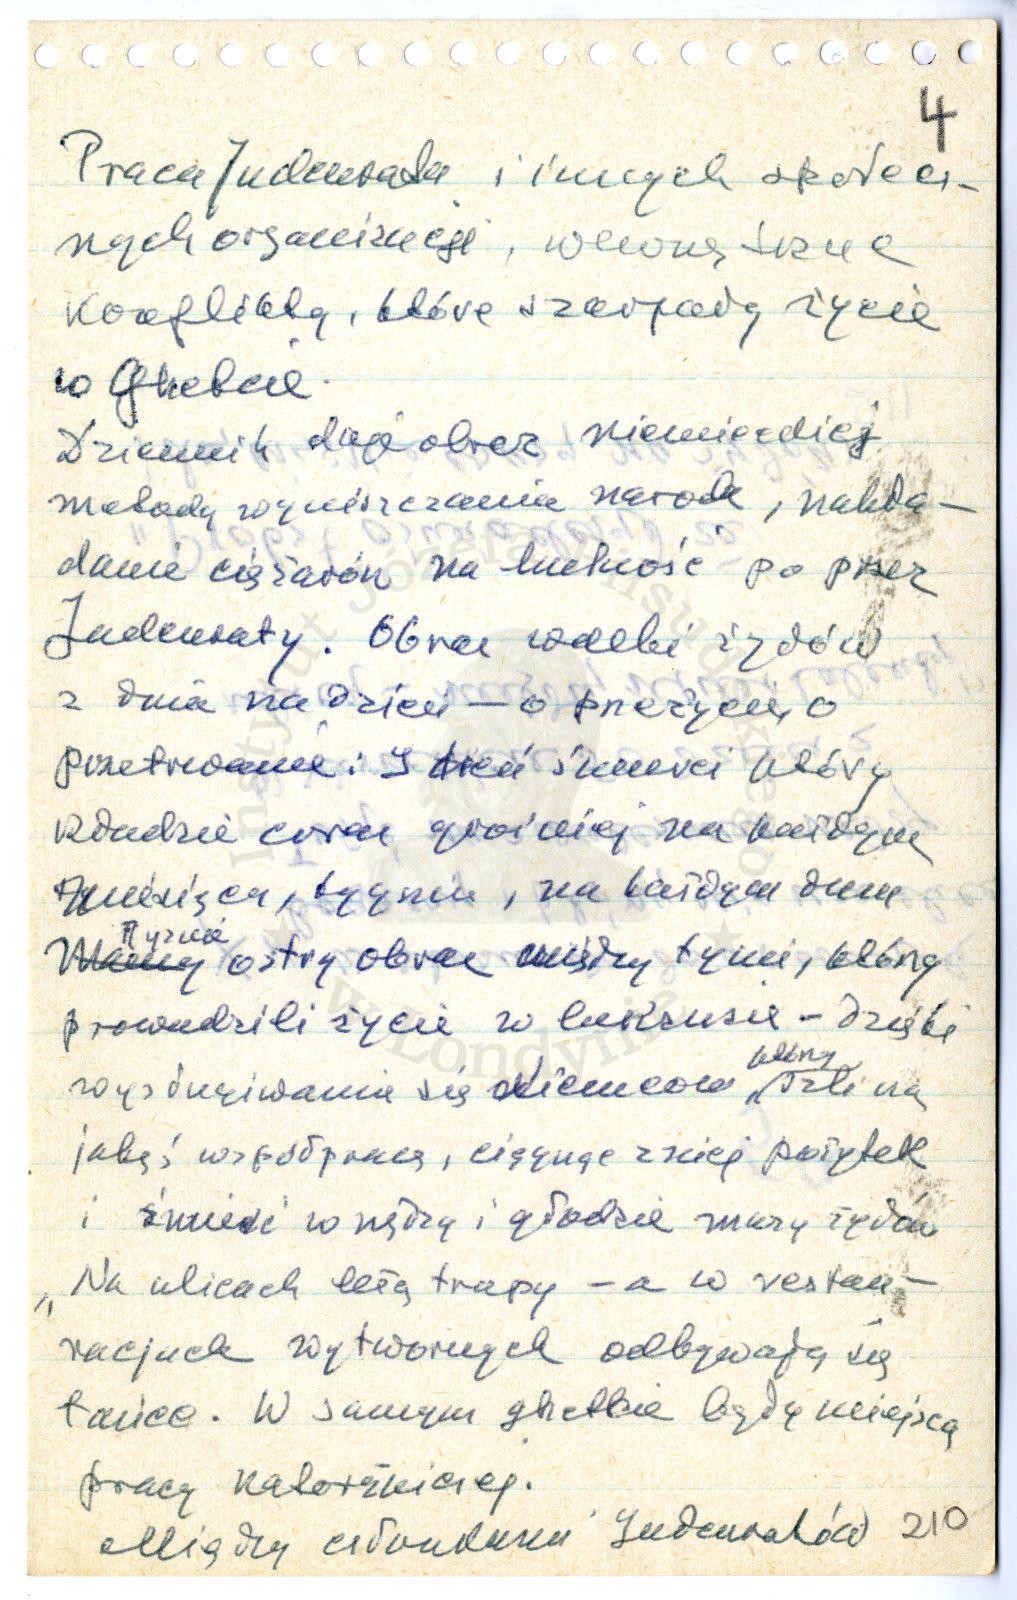 4
Praca Judenrada i innych społecz-
nych organizacji, wewnętrzne
Konflikty, które szarpały życie
w Ghetcie.
Dziennik daje obraz niemieckiej
metody wyniszczania narodu, nakła-
danie ciężarów na ludność po przez
Judenraty. Obraz walki żydów
z dnia na dzień – o przeżycie, o
przetrwanie. I cień śmierci który
kładzie coraz groźniej na każdym
miesiącu, tygodniu, na każdym dniu
Mamy ostry obraz między tymi, którzy
prowadzili życie w luksusie – dzięki
wysługiwaniu się Niemcom, którzy szli na
jakąś współpracę, ciągnąc z niej pożytek
i śmierć w nędzy i głodzie masy żydów
„Na ulicach leżą trupy – a w restau-
racjach wytwornych odbywają się
tańce. W samym ghetcie będą miejsca
pracy katorżniczej.
Między członkami Judenratów 210
Instytut Józefa Piłsudskiego
w Londynie